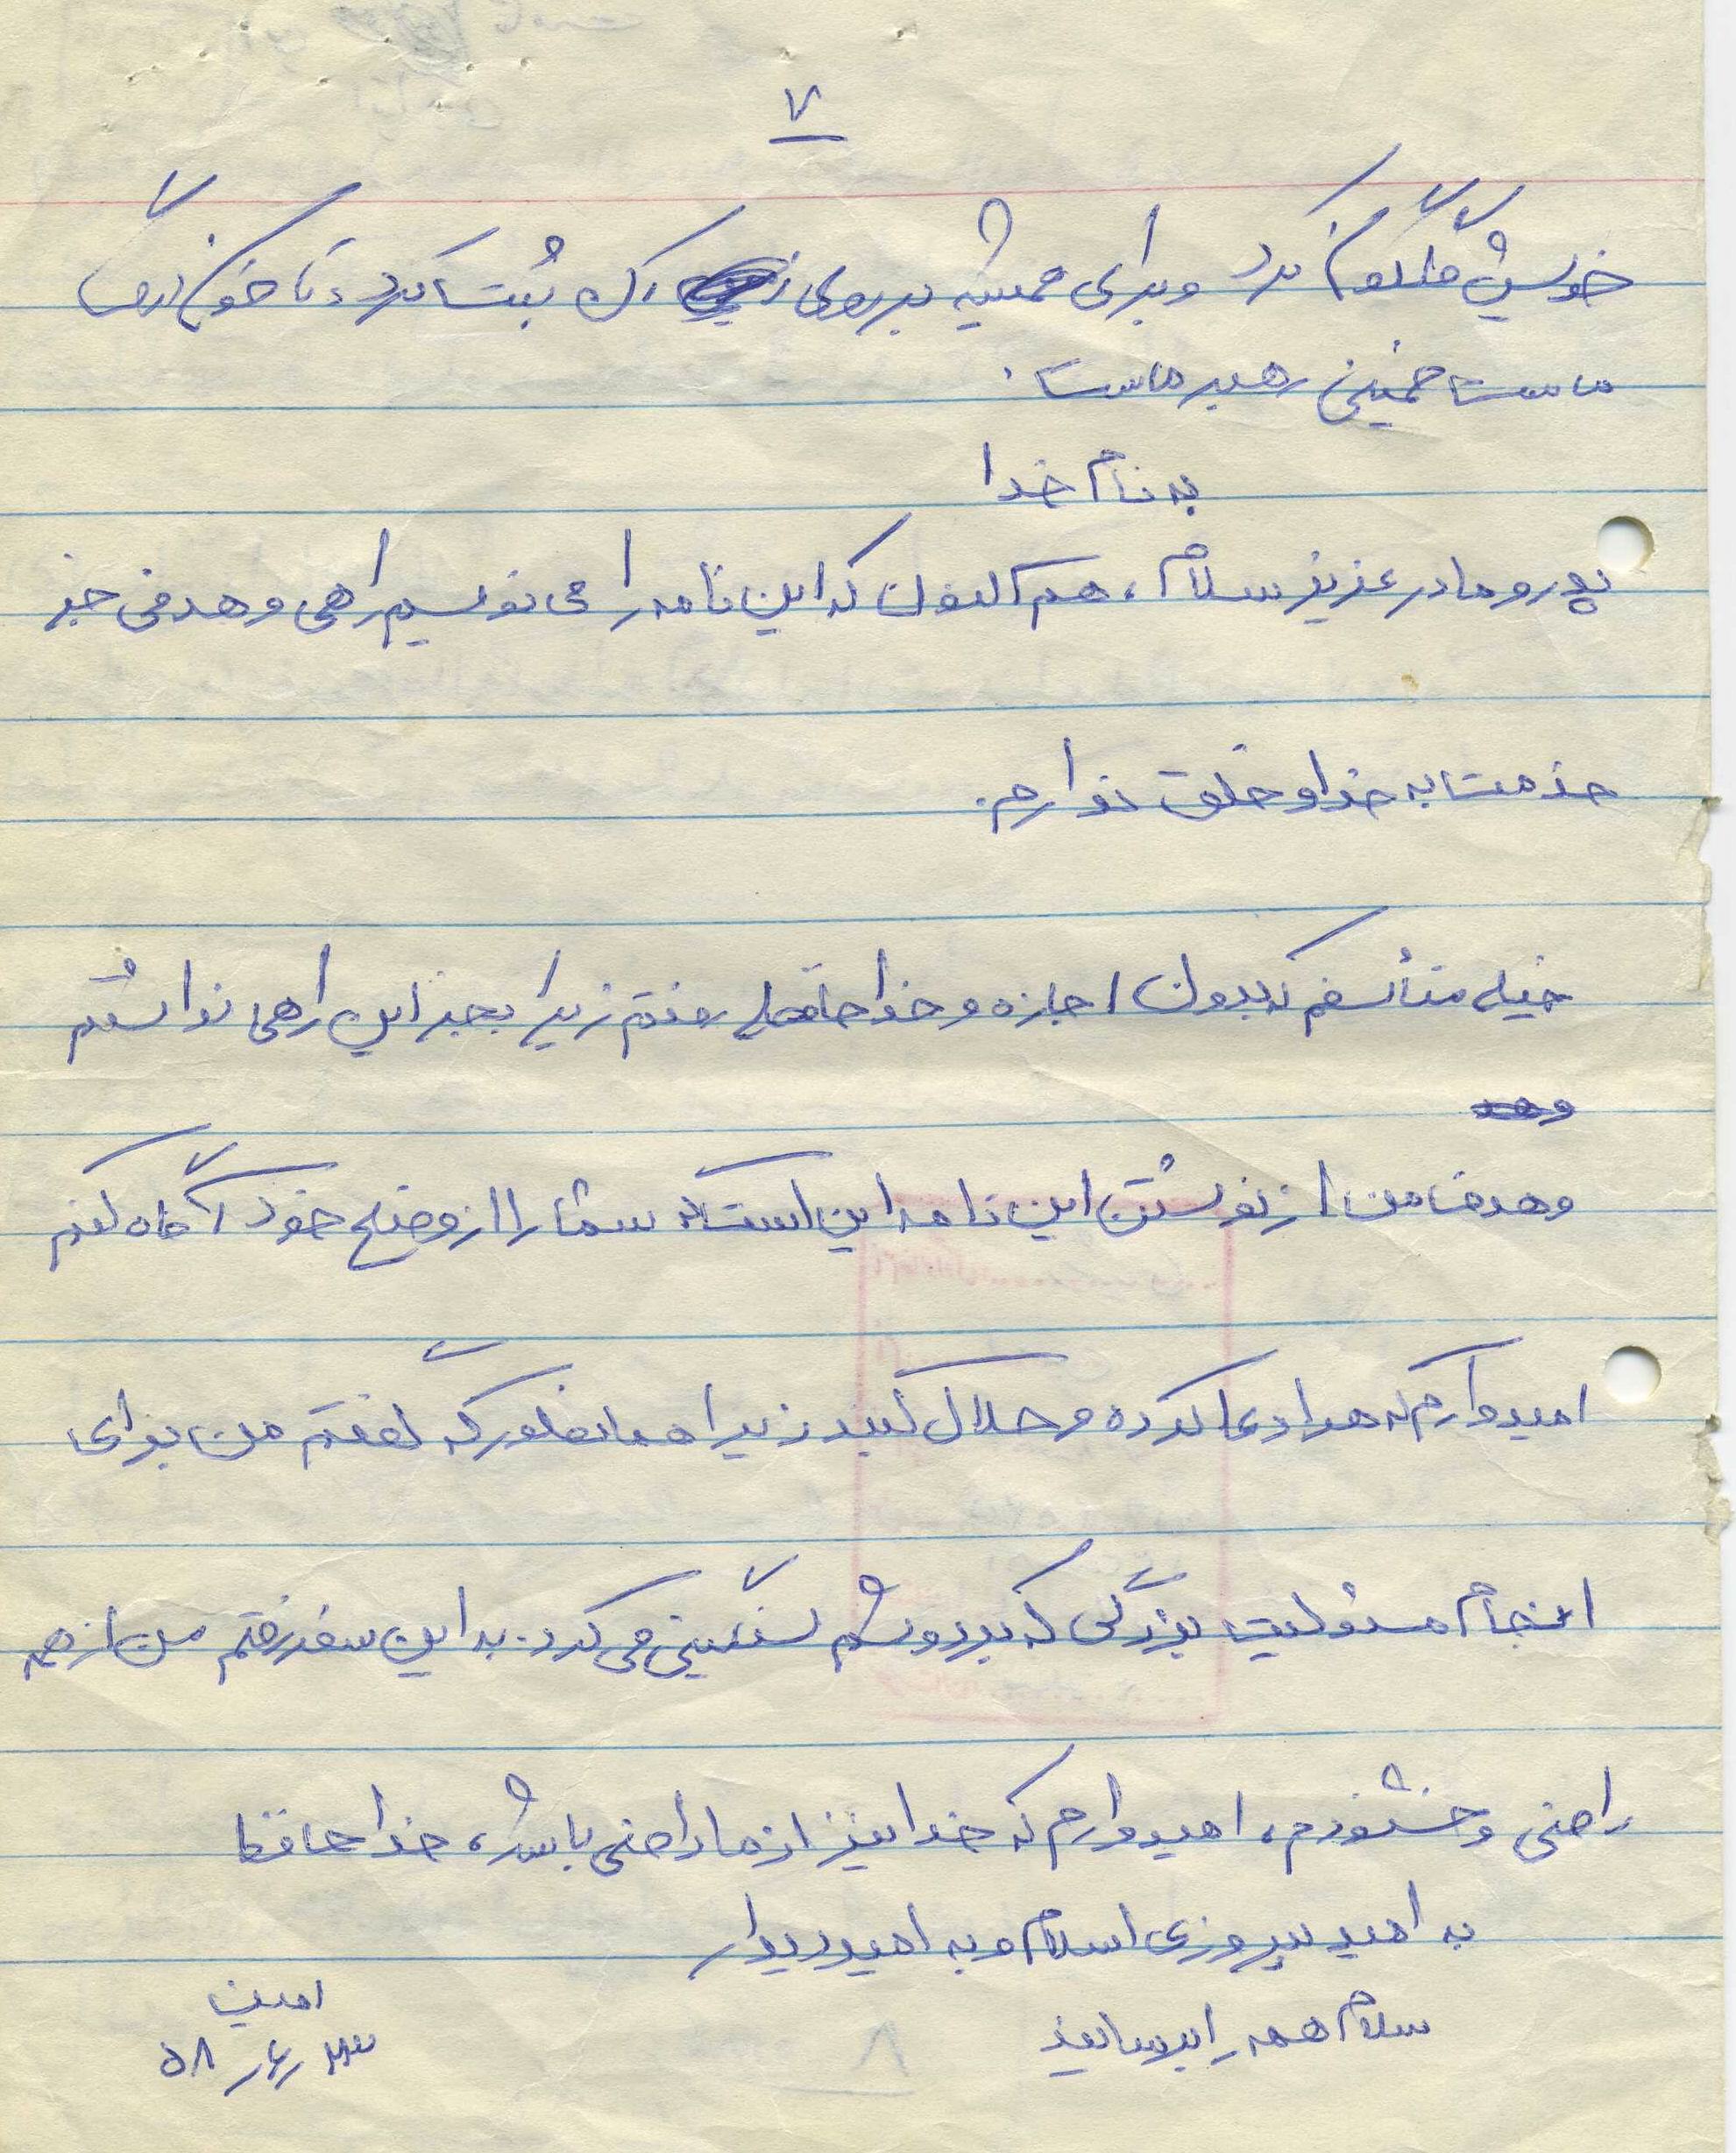 ۷
خویش گلگون کرد و برای همیشه بر روی ثبت کرد، تا خون در رگ
ماست خمینی رهبر ماست.
به نام خدا
پدر و مادر عزیز سلام، هم اکنون که این نامه را می نویسم راهی و هدفی جز
خدمت به خدا و خلق ندارم.
خیلی متأسفم که بدون اجازه و خداحافظی رفتم زیرا بجز این راهی نداشتم
وهد
و هدف من از نوشتن این نامه این است که شما را از وضع خود آگاه کنم
امیدوارم که مرا دعا کرده و حلال کنید زیرا همانطور که گفتم من برای
انجام مسئولیت بزرگی که بر دوشم سنگینی می کرد. به این سفر رفتم من از همه
راضی و خشنودم، امیدوارم که خدا نیز از ما راضی باشد، خداحافظ
به امید پیروزی اسلام و به امید دیدار
سلام همه را برسانید
امین
۵۸